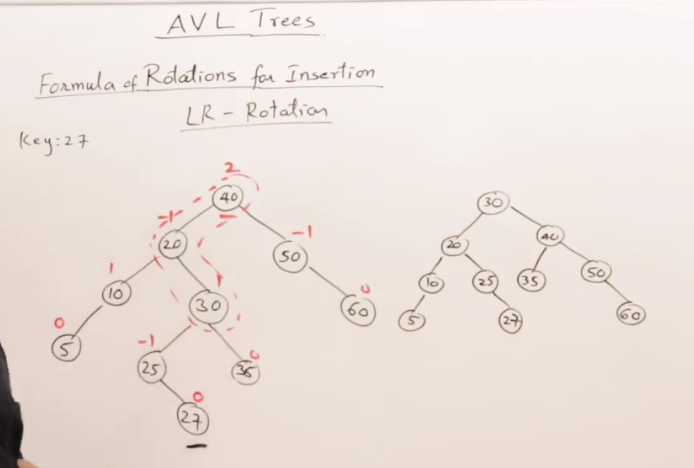 AVL Trees
Formula of Rotations for Insertion
LR - Rotation
Key:27
2
40
-1
20
-1
50
1
10
30
0
60
0
5
-1
25
0
27
30
20
40
10
25
35
50
5
27
60